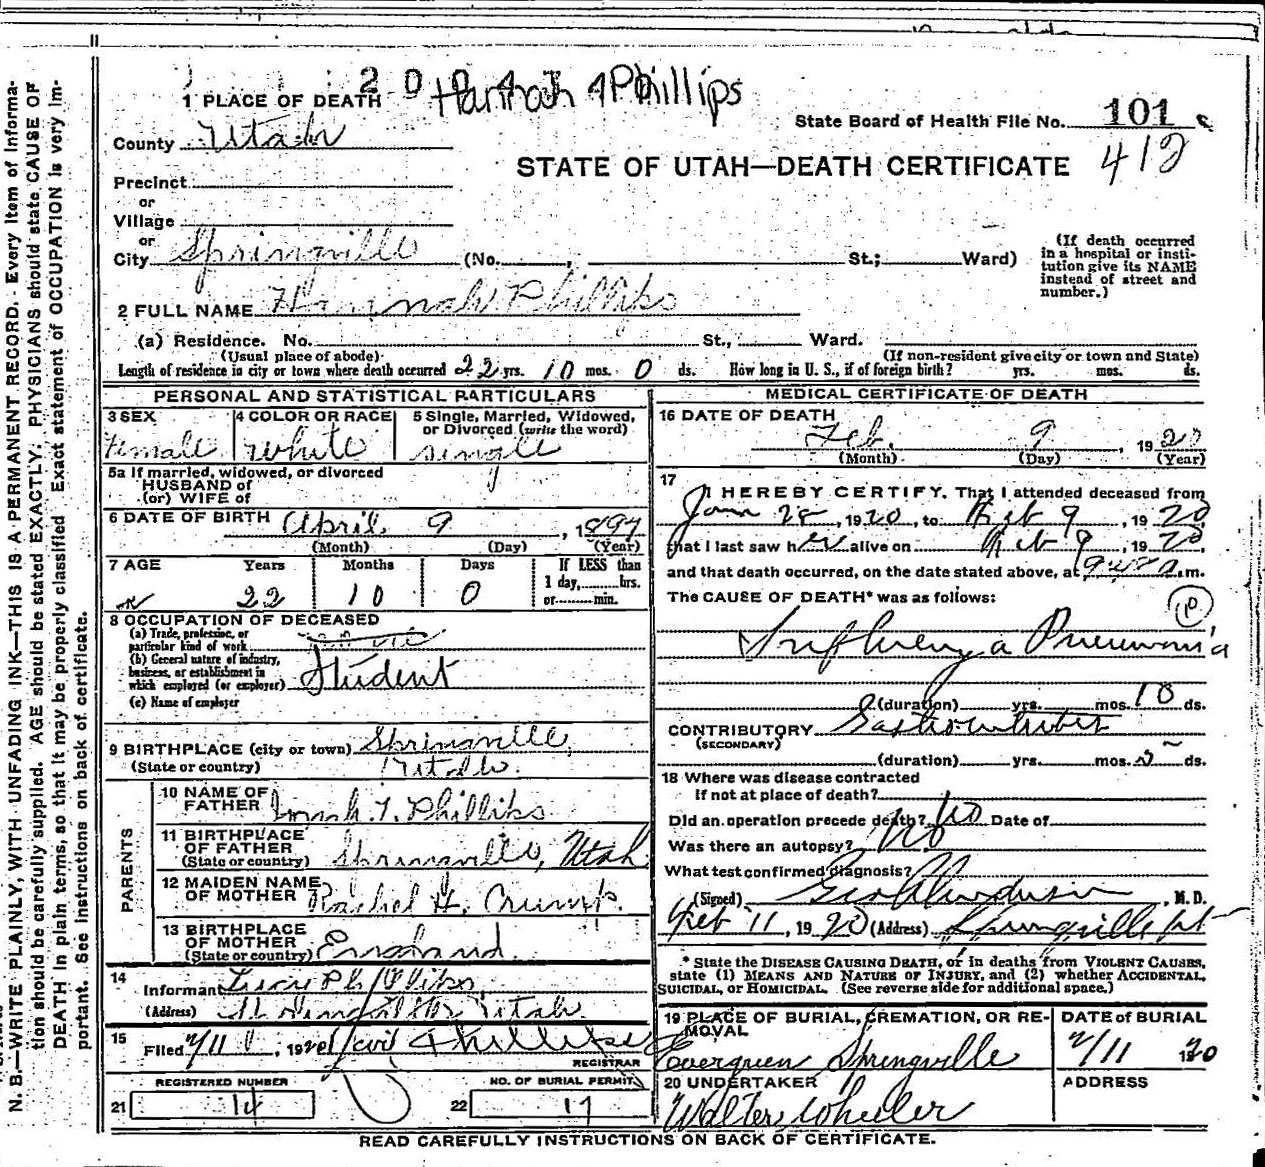 N. B.—WRITE PLAINLY, WITH UNFADING INK—THIS IS A PERMANENT RECORD. Every Item of Informa-
tion should be carefully supplied. AGE should be stated EXACTLY. PHYSICIANS should state CAUSE OF
DEATH in plain terms, so that it may be properly classified. Exact statement of OCCUPATION is very Im-
portant. See instructions on back of certificate.
Hannah Phillips
1 PLACE OF DEATH
State Board of Health File No. 101
412
County Utah
STATE OF UTAH—DEATH CERTIFICATE
Precinct
or
Village
or
City Springville (No. , St.; Ward)
(If death occurred
in a hospital or insti-
tution give its NAME
instead of street and
number.)
2 FULL NAME Hannah Phillips
(a) Residence. No. St., Ward.
(Usual place of abode) (If non-resident give city or town and State)
Length of residence in city or town where death occurred 22 yrs. 10 mos. 0 ds. How long in U. S., if of foreign birth? yrs. mos. ds.
PERSONAL AND STATISTICAL PARTICULARS
3 SEX
Female
4 COLOR OR RACE
White
5 Single, Married, Widowed,
or Divorced (write the word)
single
5a If married, widowed, or divorced
HUSBAND of
(or) WIFE of
6 DATE OF BIRTH April 9, 1897
(Month) (Day) (Year)
7 AGE Years Months Days If LESS than
1 day, hrs.
or min.
22 10 0
8 OCCUPATION OF DECEASED
(a) Trade, profession, or
particular kind of work
(b) General nature of industry,
business, or establishment in
which employed (or employer) Student
(c) Name of employer
9 BIRTHPLACE (city or town) Springville,
(State or country) Utah.
PARENTS
10 NAME OF
FATHER T. Phillips
11 BIRTHPLACE
OF FATHER
(State or country) Springville, Utah
12 MAIDEN NAME
OF MOTHER Rachel H. Crump.
13 BIRTHPLACE
OF MOTHER
(State or country) England.
14
Informant Lucy Phillips
(Address) Springville Utah.
15
Filed 2/11, 1920 Phillips
REGISTRAR
REGISTERED NUMBER
21 14
NO. OF BURIAL PERMIT
22 17
MEDICAL CERTIFICATE OF DEATH
16 DATE OF DEATH
Feb. 9, 1920
(Month) (Day) (Year)
17
I HEREBY CERTIFY, That I attended deceased from
Jan 28, 1920, to Feb 9, 1920,
that I last saw her alive on Feb 9, 1920,
and that death occurred, on the date stated above, at m.
The CAUSE OF DEATH* was as follows:
Influenza Pneumonia
(duration) yrs. mos. 10 ds.
CONTRIBUTORY Gastroenteritis
(SECONDARY)
(duration) yrs. mos. ds.
18 Where was disease contracted
if not at place of death?
Did an operation precede death? No Date of
Was there an autopsy? No
What test confirmed diagnosis?
(Signed) , M. D.
Feb 11, 1920 (Address) Springville Ut
* State the DISEASE CAUSING DEATH, or in deaths from VIOLENT CAUSES,
state (1) MEANS AND NATURE OF INJURY, and (2) whether ACCIDENTAL,
SUICIDAL, or HOMICIDAL. (See reverse side for additional space.)
19 PLACE OF BURIAL, CREMATION, OR RE-
MOVAL
Evergreen Springville
DATE of BURIAL
2/11 1920
20 UNDERTAKER
Walter Wheeler
ADDRESS
READ CAREFULLY INSTRUCTIONS ON BACK OF CERTIFICATE.